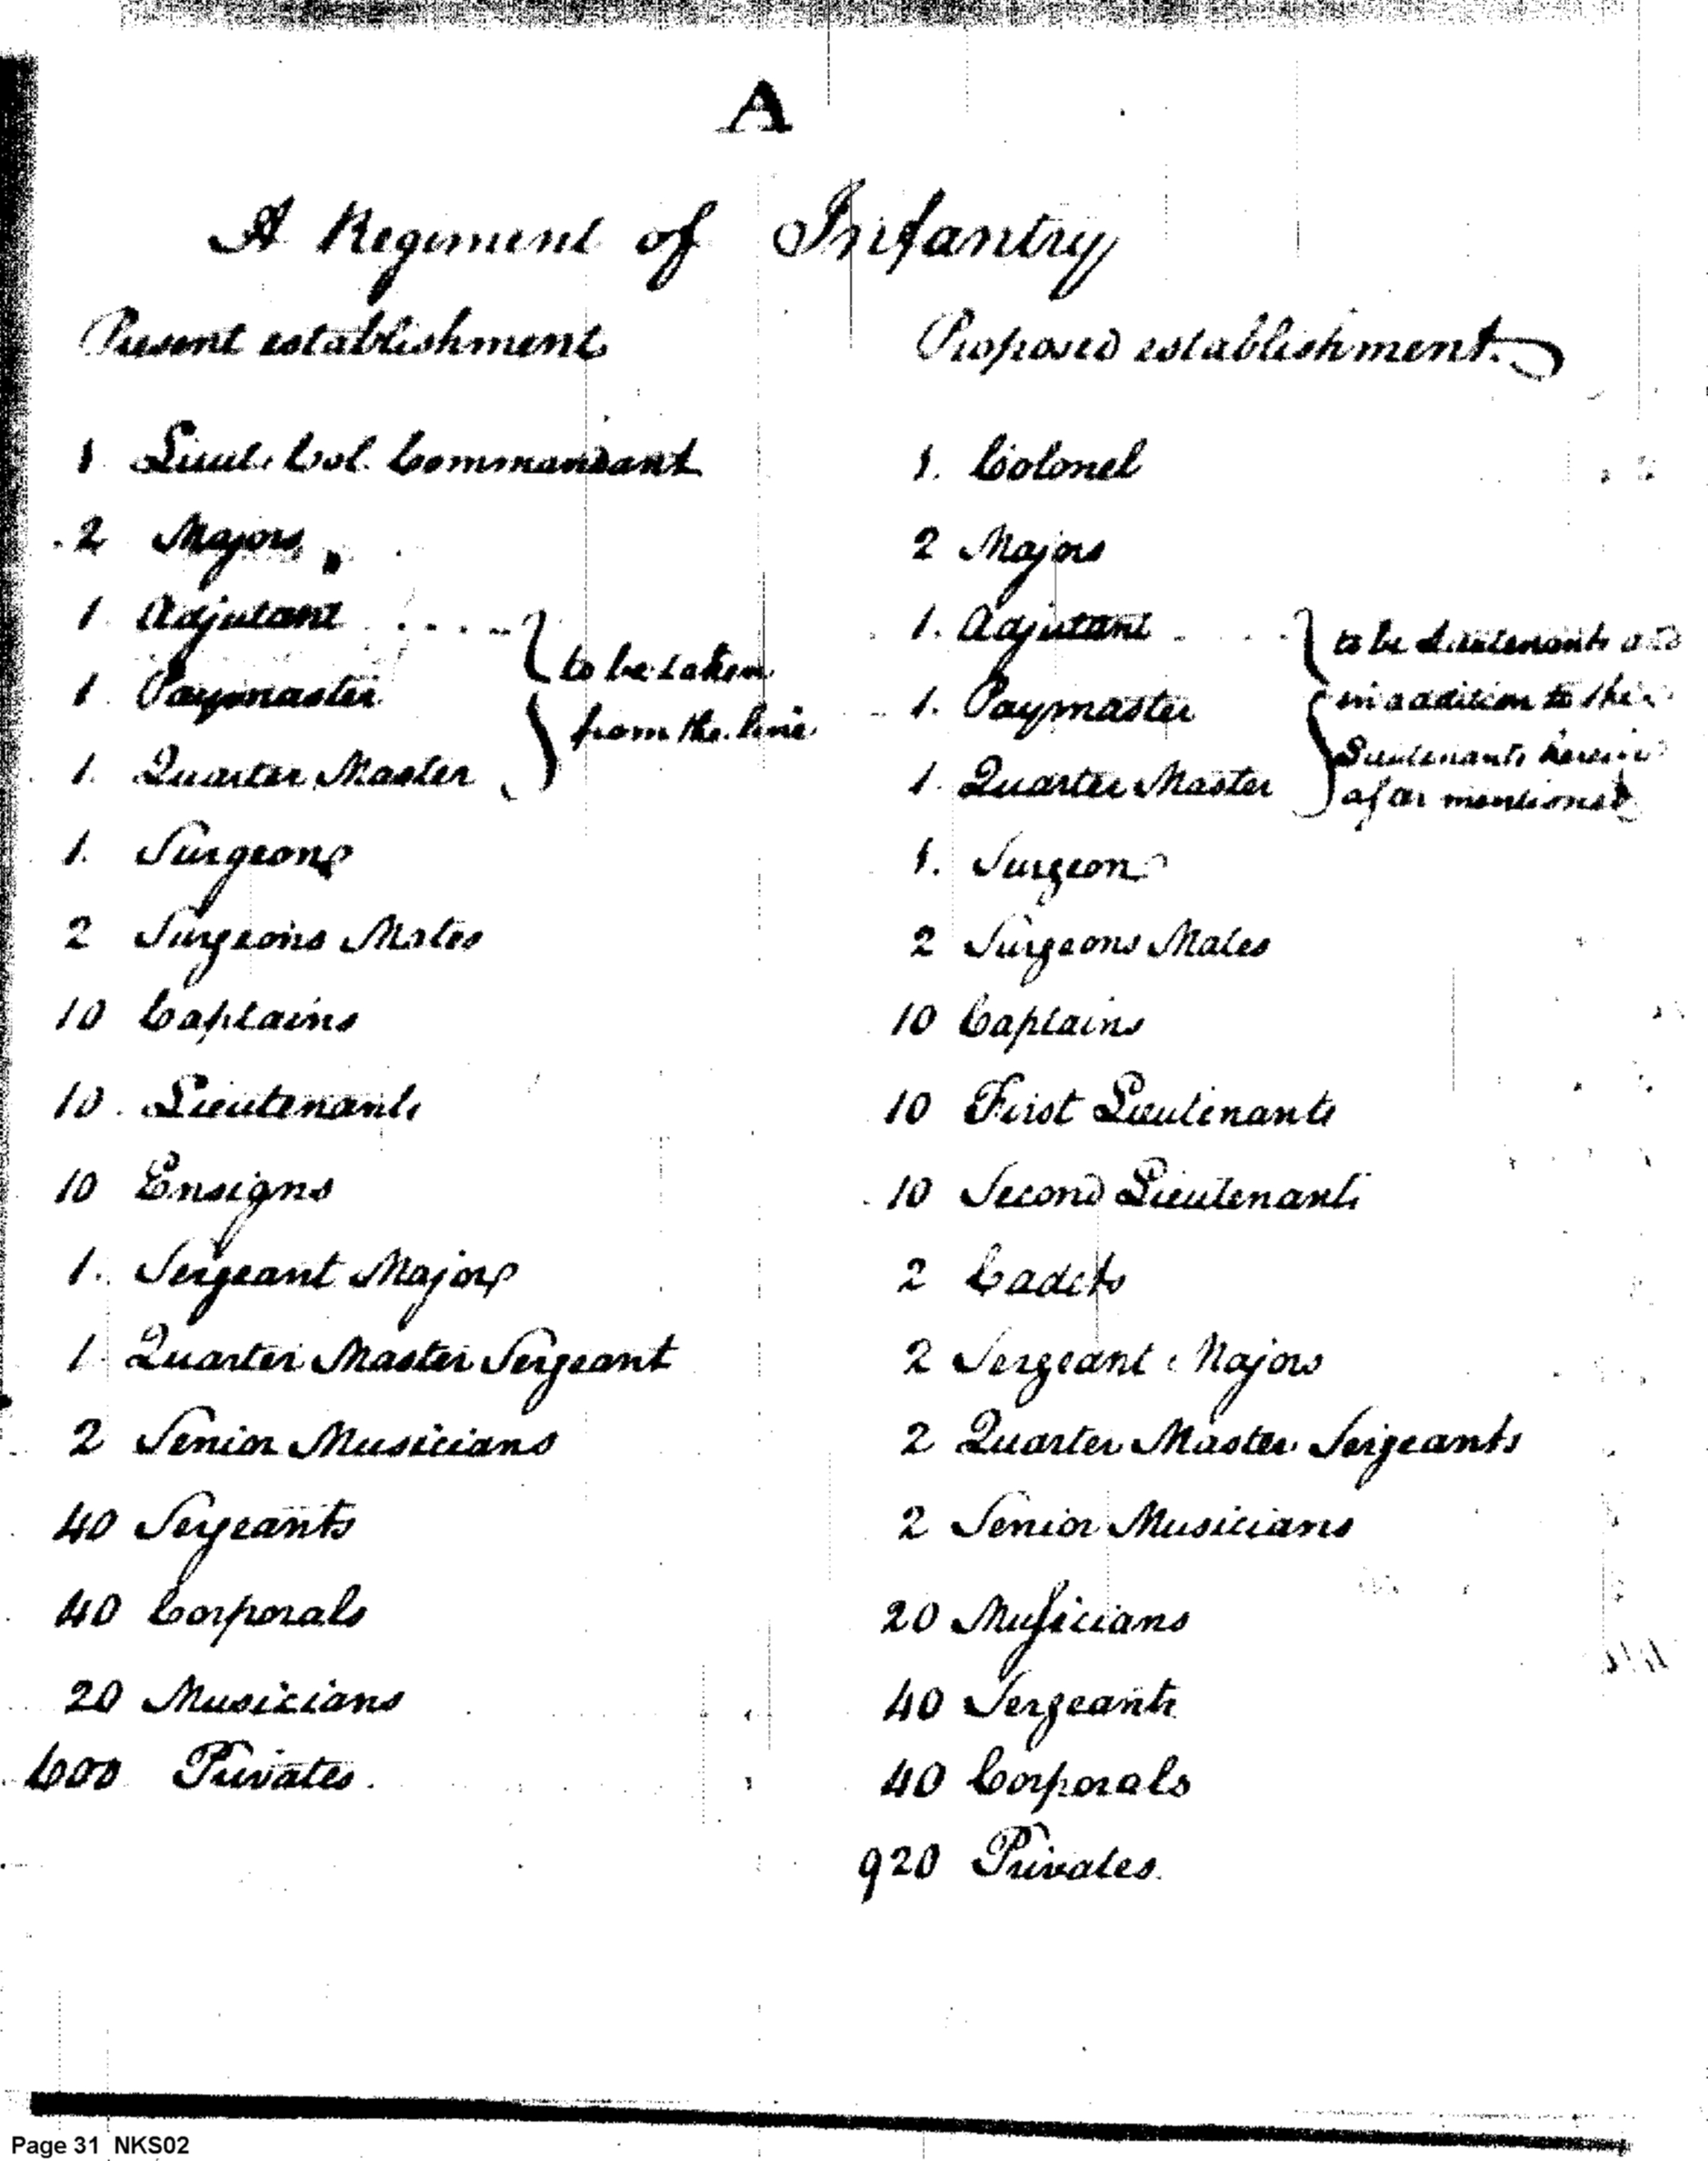 A
A Regiment of Infantry
Present establishment
1 Lieut. Col. Commandant
2 Majors
1. Adjutant
1. Paymaster
1. Quarter Master
to be taken
from the line
1. Surgeon
2 Surgeons Mates
10 Captains
10. Lieutenants
10 Ensigns
1. Sergeant Major
1. Quarter Master Sergeant
2 Senior Musicians
40 Sergeants
40 Corporals
20 Musicians
600 Privates.
Proposed establishment.
1. Colonel
2 Majors
1. Adjutant
1. Paymaster
1. Quarter Master
to be Lieutenants and
in addition to the
Lieutenants herein
after mentioned
1. Surgeon
2 Surgeons Mates
10 Captains
10 First Lieutenants
10 Second Lieutenants
2 Cadets
2 Sergeant Majors
2 Quarter Master Sergeants
2 Senior Musicians
20 Musicians
40 Sergeants
40 Corporals
920 Privates.
Page 31 NKS02